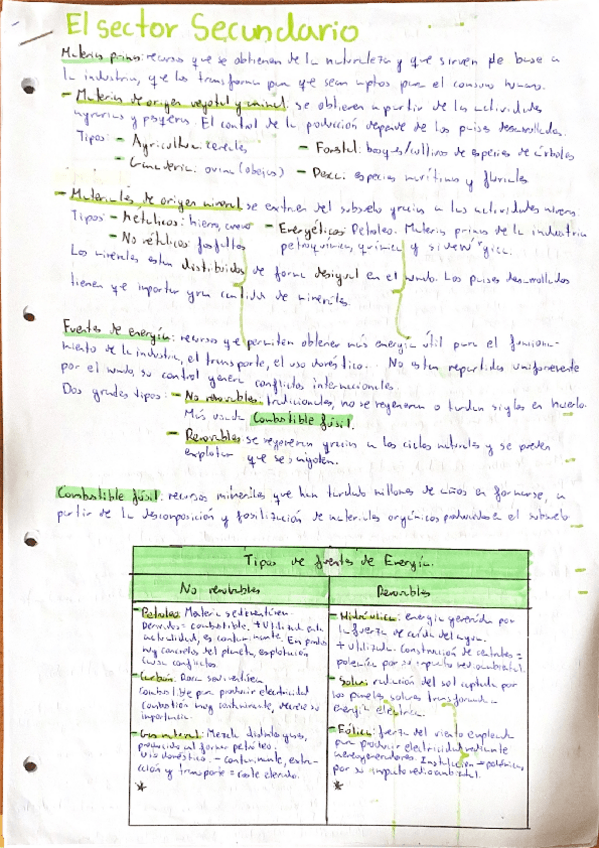 El sector Secundario
Materias primas: recursos que se obtienen de la naturaleza y que sirven de base a
la industria, que las transforma para que sean aptos para el consumo humano.
- Materias de origen vegetal y animal: se obtienen a partir de las actividades
agrarias y pesqueras. El control de la producción depende de los países desarrollados.
Tipos: - Agricultura: cereales - Forestal: bosques/cultivos de especies de árboles
- Ganadería: ovina (ovejas) - Pesca: especies marítimas y fluviales
- Materiales de origen mineral se extraen del subsuelo gracias a las actividades mineras.
Tipos: - Metálicos: hierro, - Energéticos: Petroleo. Materia primas de la industria
- No metálicos fosfatos petroquímica, química y siderúrgica.
Los minerales estan distribuidos de forma desigual en el mundo. Los países desarrollados
tienen que importar gran cantidad de minerales.
Fuentes de energía: recursos que permiten obtener más energía útil para el funciona-
miento de la industria, el transporte, el uso doméstico... No estan repartidas uniformemente
por el mundo, su control genera conflictos internacionales.
Dos grandes tipos: - No renovables: tradicionales, no se regeneran o tardan siglos en hacerlo.
Más usada Combustible fúsil.
- Renovables se regeneran gracias a los ciclos naturales y se pueden
explotar que se agoten.
Combustible fúsil: recursos minerales que han tardado millones de años en formarse, a
partir de la descomposición y fosilización de materiales orgánicos producidos en el subsuelo
Tipos de fuentes de Energía.
No renovables Renovables
- Petroleo: Materia sedimentárea.
Derivados: combustible. + Utilizada en la
actualidad, es contaminante. En puntos
muy concretos del planeta, explotación
causa conflictos.
- Carbón. Roca sedimentárea
Combustible para producir electricidad
combustión muy contaminante, decrece su
importancia.
- Gas natural: Mezcla distintos gases,
producido al formar petróleo.
Uso doméstico. - contaminante, extra-
cción y transporte = coste elevado.
*
- Hidráulica: energía generada por
la fuerza de caída del agua.
+ Utilizada. Construcción de centrales =
polémica por su impacto medioambiental.
- Solar: radiación del sol captada por
los paneles solares transformada =
energía eléctrica.
- Eólica: fuerza del viento empleada
para producir electricidad mediante
aerogeneradores. Instalación = polémicas
por su impacto medioambiental.
*